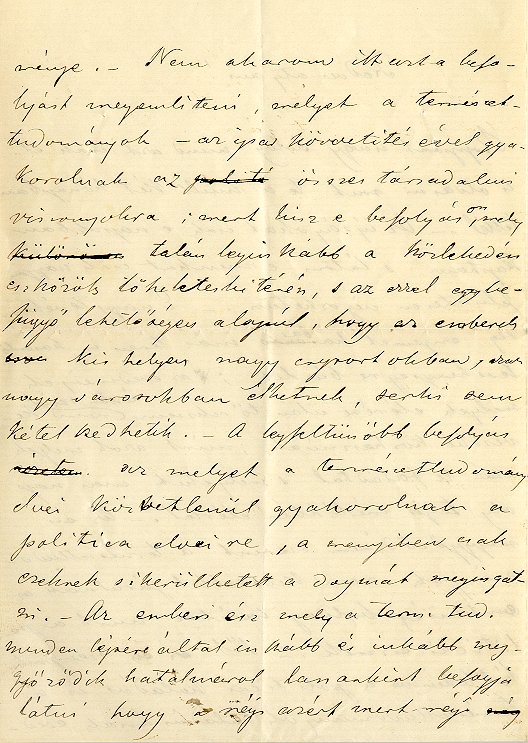 ménye. – Nem akarom itt azt a befo-
lyást megemlíteni, melyet a természet-
tudományok – az ipar közvetítésével gya-
korolnak az politi összes társadalmi
viszonyokra; mert hisz e befolyáson, mely
különösen talán leginkább a közlekedési
eszközök tökéletesbítésén, s az ezzel egybe-
függő lehetőségen alapúl, hogy az emberek
kis helyen nagy csoportokban, azaz
nagy városokban élhetnek, senki sem
kételkedhetik. – A legfeltünőbb befolyás
az melyet a természettudomány
elvei közvetlenül gyakorolnak a
politica elveire, a menyiben csak
ezeknek sikerülhetett a dogmát megingat-
ni. – Az emberi ész mely a term. tud.
minden lépése által inkább és inkább meg-
győződik hatalmáról lassanként befogja
látni hogy a régi azért mert régi még